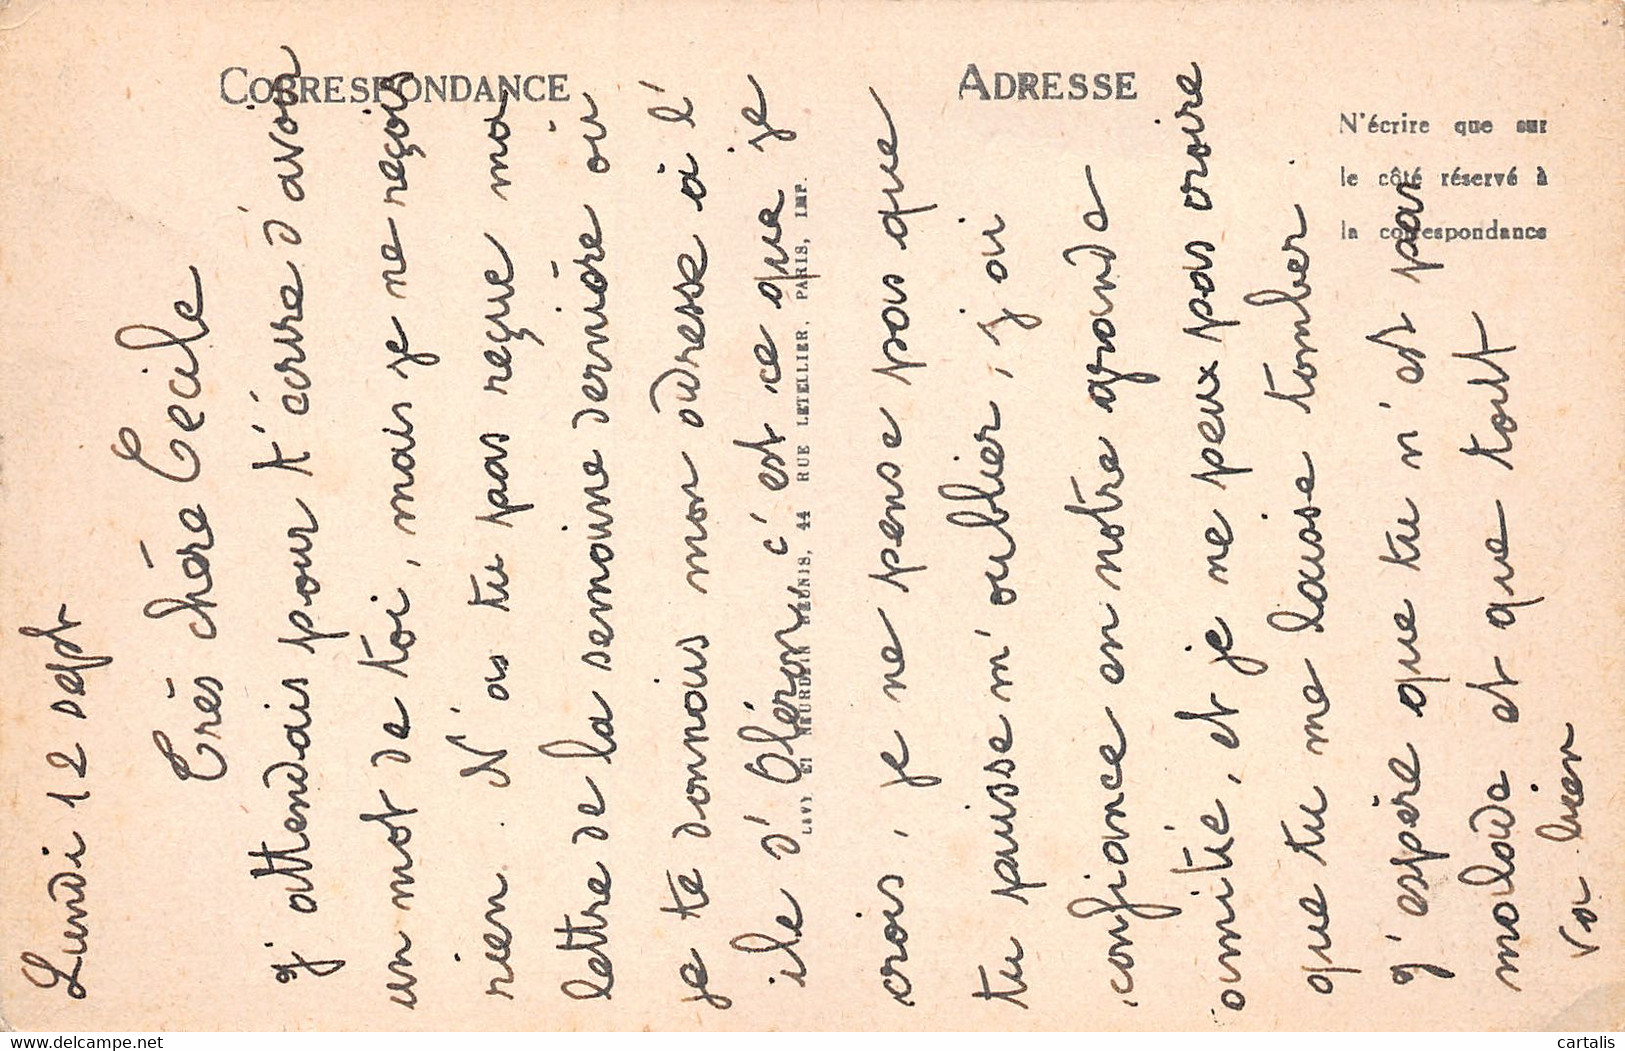 CORRESPONDANCE
ADRESSE
N'écrire que sur
le côté réservé à
la correspondance
LEVY ET NEURDEIN REUNIS, 44 RUE LETELLIER, PARIS, IMP.
Lundi 12 sept
Très chère Cécile
J'attendais pour t'écrire d'avoir
un mot de toi, mais je ne reçois
rien. N'as tu pas reçue ma
lettre de la semaine dernière où
je te donnais mon adresse à l'
île d'Oléron c'est ce que je
crois, je ne pense pas que
tu puisse m'oublier, j'ai
confiance en notre grande
amitié, et je ne peux pas croire
que tu me laisse tomber.
J'espère que tu n'est pas
malade et que tout
va bien
cartalis